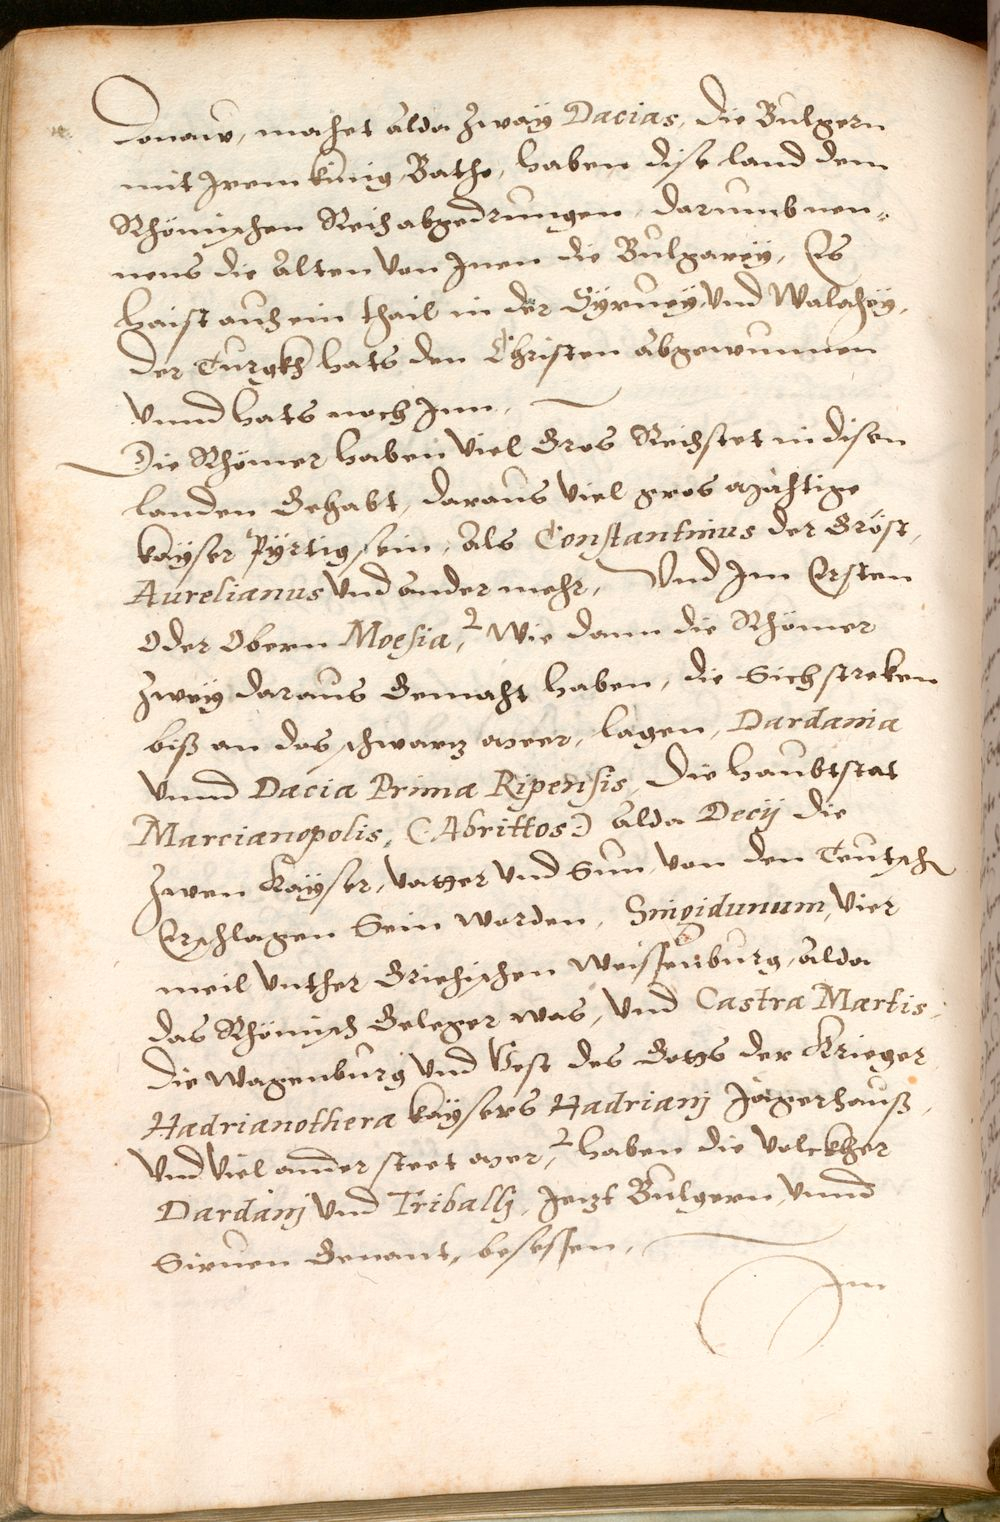 Donaw, machet alda zway Dacias, die Bulgern
mit Irem künig Batho, haben dise land dem
Rhömischen Reich abgedrungen, darumb nen¬
nens die alten von Inen die Bulgarey, Es
haist auch ein thail in der Syruey, vnd Walachey,
der Turgkh hats den Christen abgewunnen
vnnd hats noch Inn,
Die Rhömer haben viel Gros Reichstet in disen
landen Gehabt, daraus viel gros mächtige
kayser Pürtig sein, als Constantinus der Gröst,
Aurelianus vnd ander mehr, Vnd Im Ersten
oder obern Moesia, Wie dann die Rhömer
zwey daraus Gemacht haben, die Sich streken
biß an das schwarz meer, lagen, Dardania
vnnd Dacia Prima Ripensis, die haubtstat
Marcianopolis, (Abrittos) alda Decij die
zwen Kayser, vatter vnd Sun, von den Teutschn
Erschlagen Sein worden, Singidunum, vier
meil vnther Griechischen Weissenburg, alda
das Rhömisch Geleger was, vnd Castra Martis,
die wagenburg vnd Vest des Gotts der Krieger
Hadrianothera kaysers Hadrianj Jägerhauß,
vnd viel ander steet mer, haben die volckher
Dardanj vnd Triballj, Jetzt Bulgern, vnnd
Siruen Genant, besessen,
Im